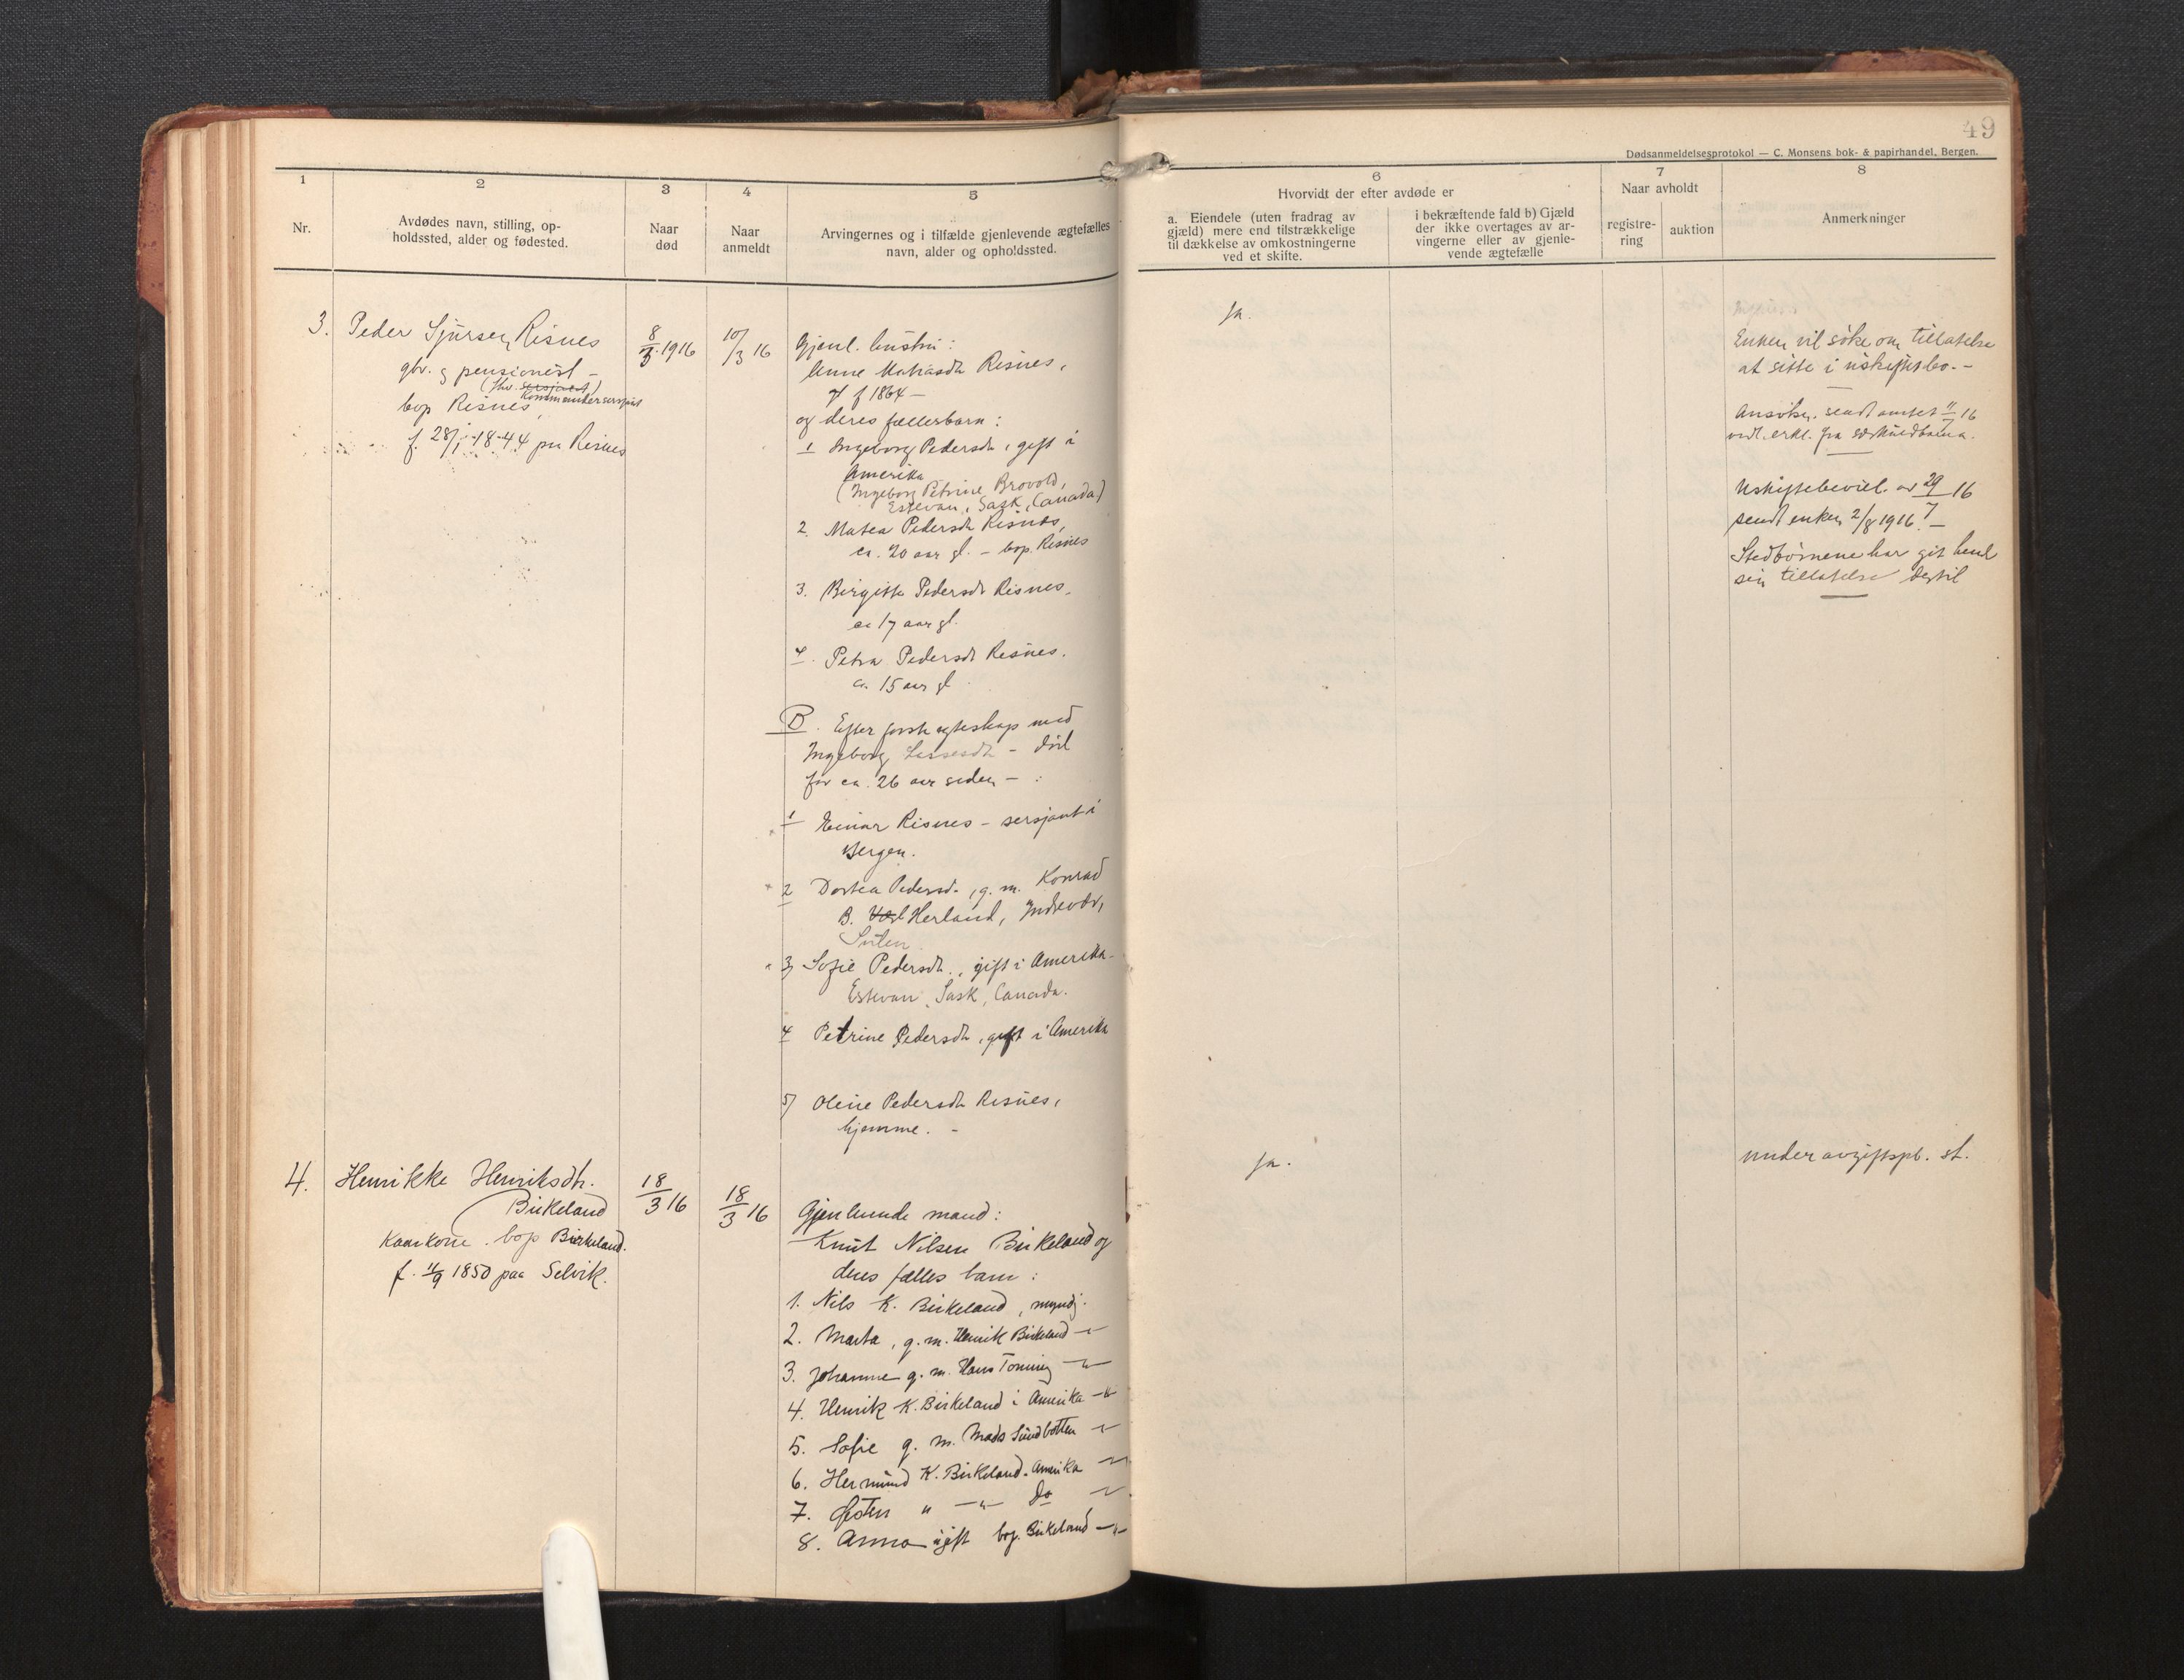 49
Dødsanmeldelsesprotokol — C. Monsens bok- & papirhandel, Bergen.
1
Nr.
2
Avdødes navn, stilling, op-
holdssted, alder og fødested.
3
Naar
død
4
Naar
anmeldt
5
Arvingernes og i tilfælde gjenlevende ægtefælles
navn, alder og opholdssted.
6
Hvorvidt der efter avdøde er
a. Eiendele (uten fradrag av
gjæld) mere end tilstrækkelige
til dækkelse av omkostningerne
ved et skifte.
i bekræftende fald b) Gjæld
der ikke overtages av ar-
vingerne eller av gjenle-
vende ægtefælle
7
Naar avholdt
registre-
ring
auktion
8
Anmerkninger
3.
Peder Sjursen Risnes
gbr. og pensionist -
(fhv. sersjant)
Kommandersersjant
bop Risnes,
f. 28/1-1844 paa Risnes
8/3 1916
10/3 16
Gjenl. hustru:
Anne Matiasdtr Risnes,
f 1864 -
og deres fællesbarn:
1 Ingeborg Pedersdtr, gift i
Amerika
(Ingeborg Petrine Brovold,
Estevan, Sask, Canada)
2. Matea Pedersdtr Risnes,
ca. 20 aar gl. - bop. Risnes
3. Birgitte Pedersdtr Risnes,
ca 17 aar gl.
4. Petra Pedersdtr Risnes.
ca. 15 aar gl
B. Efter første egteskap med
Ingeborg Lassesdtr - död
for ca. 26 aar siden - :
1 Einar Risnes - sersjant i
Bergen.
2 Dortea Pedersd., g. m. Konrad
B. Herland, Indrevær,
Sulen
3) Sofie Pedersdtr., gift i Amerika-
Estevan, Sask, Canada.
4 Petrine Pedersdtr, gift i Amerika
5) Oline Pedersdtr Risnes,
hjemme. -
Ja.
Enken vil søke om tillatelse
at sitte i uskiftet bo. -
Ansökn. sendt amtet 11/ 16
vedl. erkl. fra særkuldbarna.
Uskiftebevil. av 29/7 16
sendt enken 2/8 1916. -
Stedbörnene har git hend
sin tillatelse dertil
4.
Henrikke Henriksdtr.
Birkeland
Kaarkone. bop Birkeland.
f. 11/9 1850 paa Selvik.
18/3 16
18/3 16
Gjenlevende mand:
Knut Nilsen Birkeland og
deres fælles barn:
1. Nils K. Birkeland, myndj.
2. Marta, g. m. Henrik Birkeland -"-
3. Johanne g. m. Hans Toning -"-
4. Henrik K. Birkeland i Amerika -"-
5. Sofie g. m. Mads Sundbotten -"-
6. Hermund K. Birkeland. Amerika -"-
7. Østen " -"- do -"-
8. Anna ugift bop. Birkeland -"-
Ja.
under avgiftspl. st.